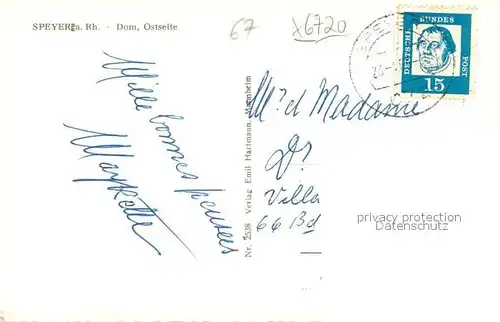 SPEYER a. Rh. - Dom, Ostseite
67
X6720
DEUTSCHE BUNDES POST
15
Mille bonnes pensées
Nr. 2538 Verlag Emil Hartmann, Mannheim
M. et Madame
Dr
Villa
66 Bd
privacy protection
Datenschutz